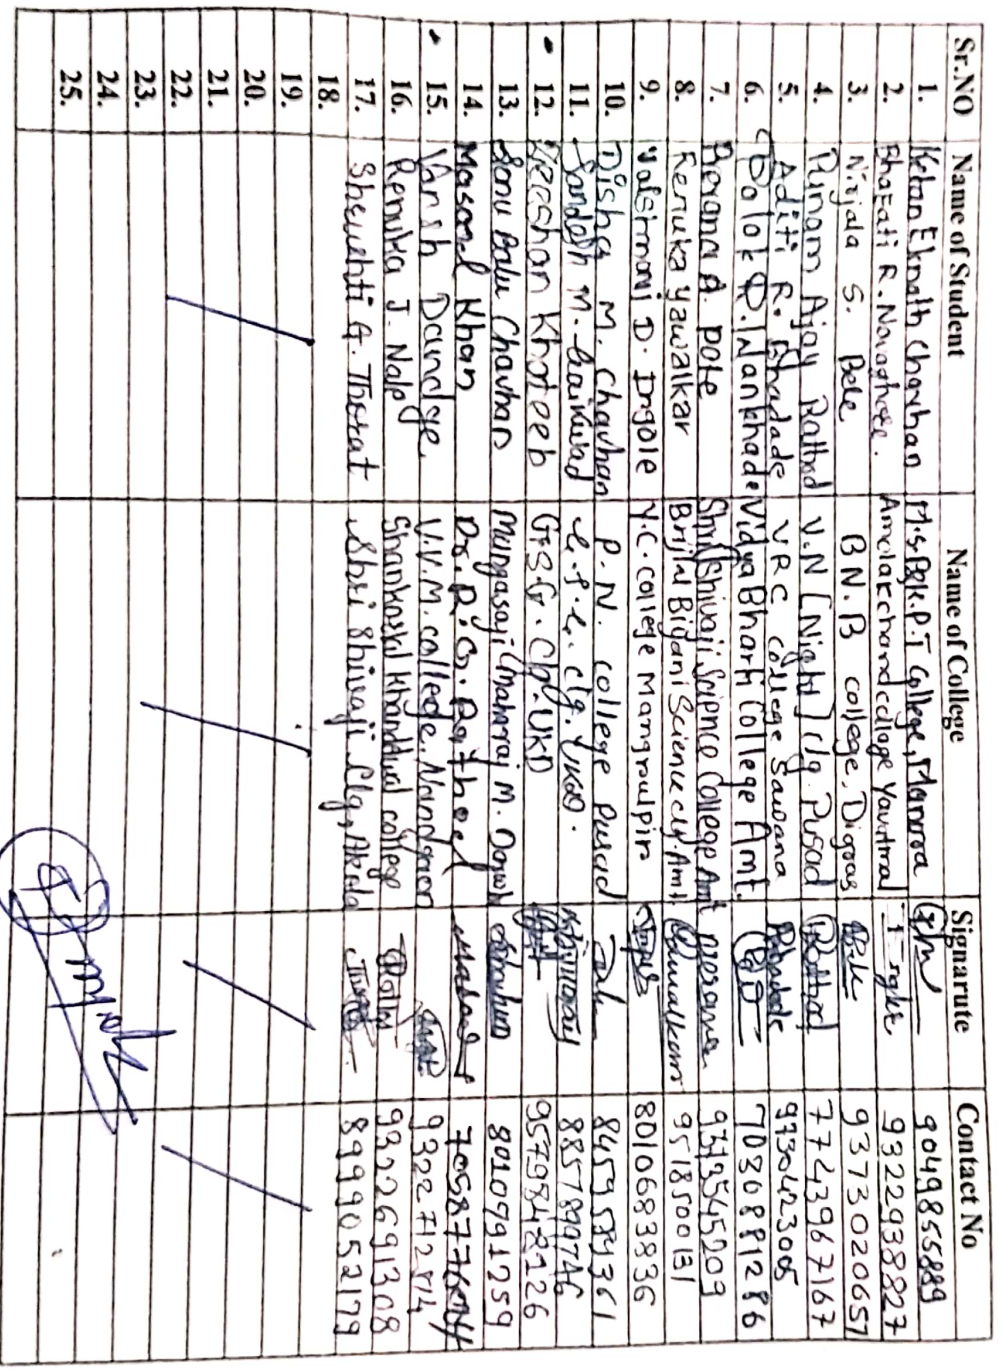 Sr.NO Name of Student Name of College Signarute Contact No
1. Ketan Eknath Chavhan M.S.P.K.P.T College, Manora 9049855889
2. Bharati R. Navaghare. Amolakchand college Yavatmal 9322938827
3. Nirjala S. Bele B.N.B college, Digras Bele 9373020657
4. Punam Ajay Rathod V.N [Night] clg. Pusad Rathod 7743967167
5. Aditi R. Bhadade VRC college Savana Bhadade 9930423005
6. Q. Wankhade Vidya Bharti College Amt. 7030881286
7. Prerana A. Pote Shri Shivaji Science College Amt prerana 9373545209
8. Renuka Yawalkar Brijlal Biyani Science clg. Amt 9518500131
9. D. Ingole Y.C. college Mangrulpir 8010683836
10. Disha M. Chavhan P.N. college Pusad 8459584361
11. Sandesh M. Gaikwad clg. UKD. 8857899746
12. Zeeshan Khateeb G.S.G. Clg. UKD 9579848126
13. Sonu Balu Chavhan Mungasaji Maharaj M. 8010791259
14. Masood Khan Dr. R.G. Rathod Masood
15. Vansh Dandge V.V.M. college, Nandgaon
16. Renuka J. Nalp Shankarlal Khandelwal college 9322691308
17. G. Thorat Shri Shivaji Clg, Akola 8999052179
18.
19.
20.
21.
22.
23.
24.
25.